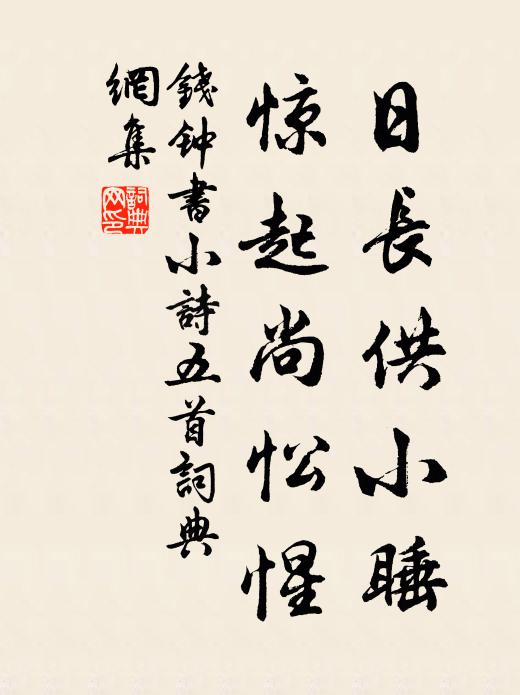 日長供小睡
惊起尚忪惺
錢钟書小詩五首詞典
網集
詞典網印